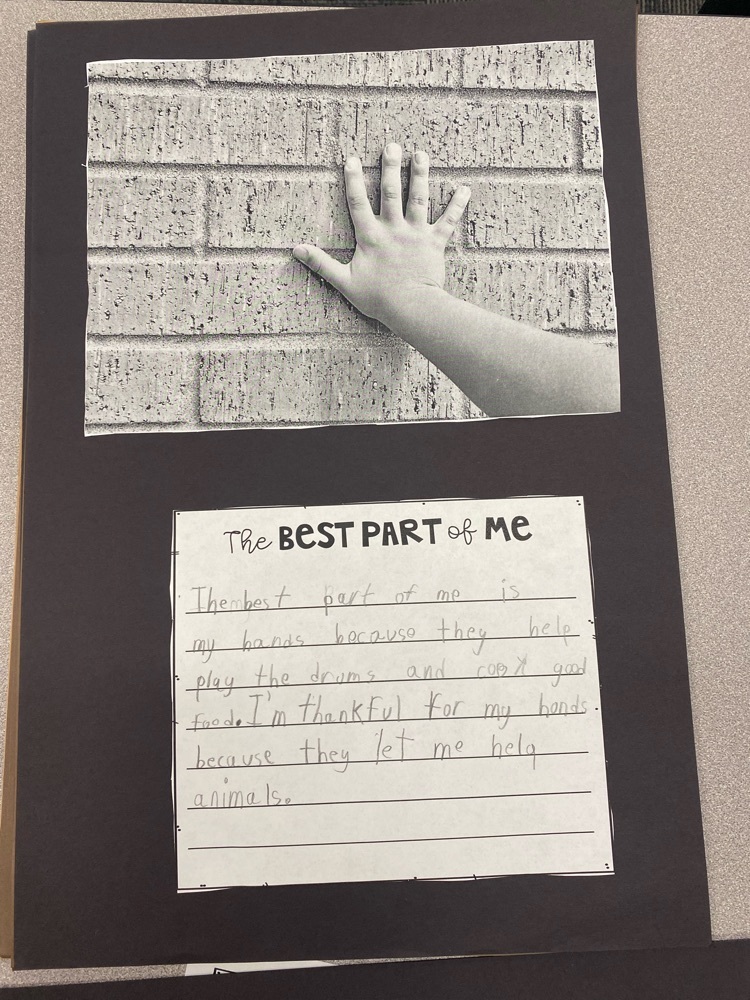 The BEST PART of ME
The best part of me is
my hands because they help
play the drums and cook good
food. I'm thankful for my hands
because they let me help
animals.